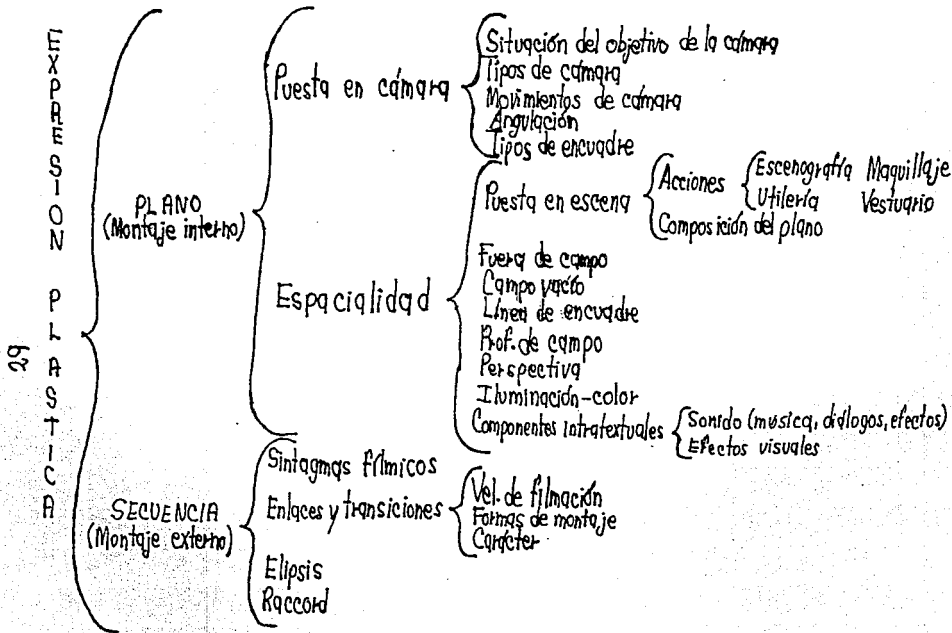 EXPRESION PLASTICA
29
PLANO
(Montaje interno)
Puesta en cámara
Situación del objetivo de la cámara
Tipos de cámara
Movimientos de cámara
Angulación
Tipos de encuadre
Espacialidad
Puesta en escena
Acciones
Escenografía Maquillaje
Utilería Vestuario
Composición del plano
Fuera de campo
Campo vacío
Línea de encuadre
Prof. de campo
Perspectiva
Iluminación-color
Componentes intratextuales
Sonido (música, diálogos, efectos)
Efectos visuales
SECUENCIA
(Montaje externo)
Sintagmas fílmicos
Enlaces y transiciones
Vel. de filmación
Formas de montaje
Carácter
Elipsis
Raccord